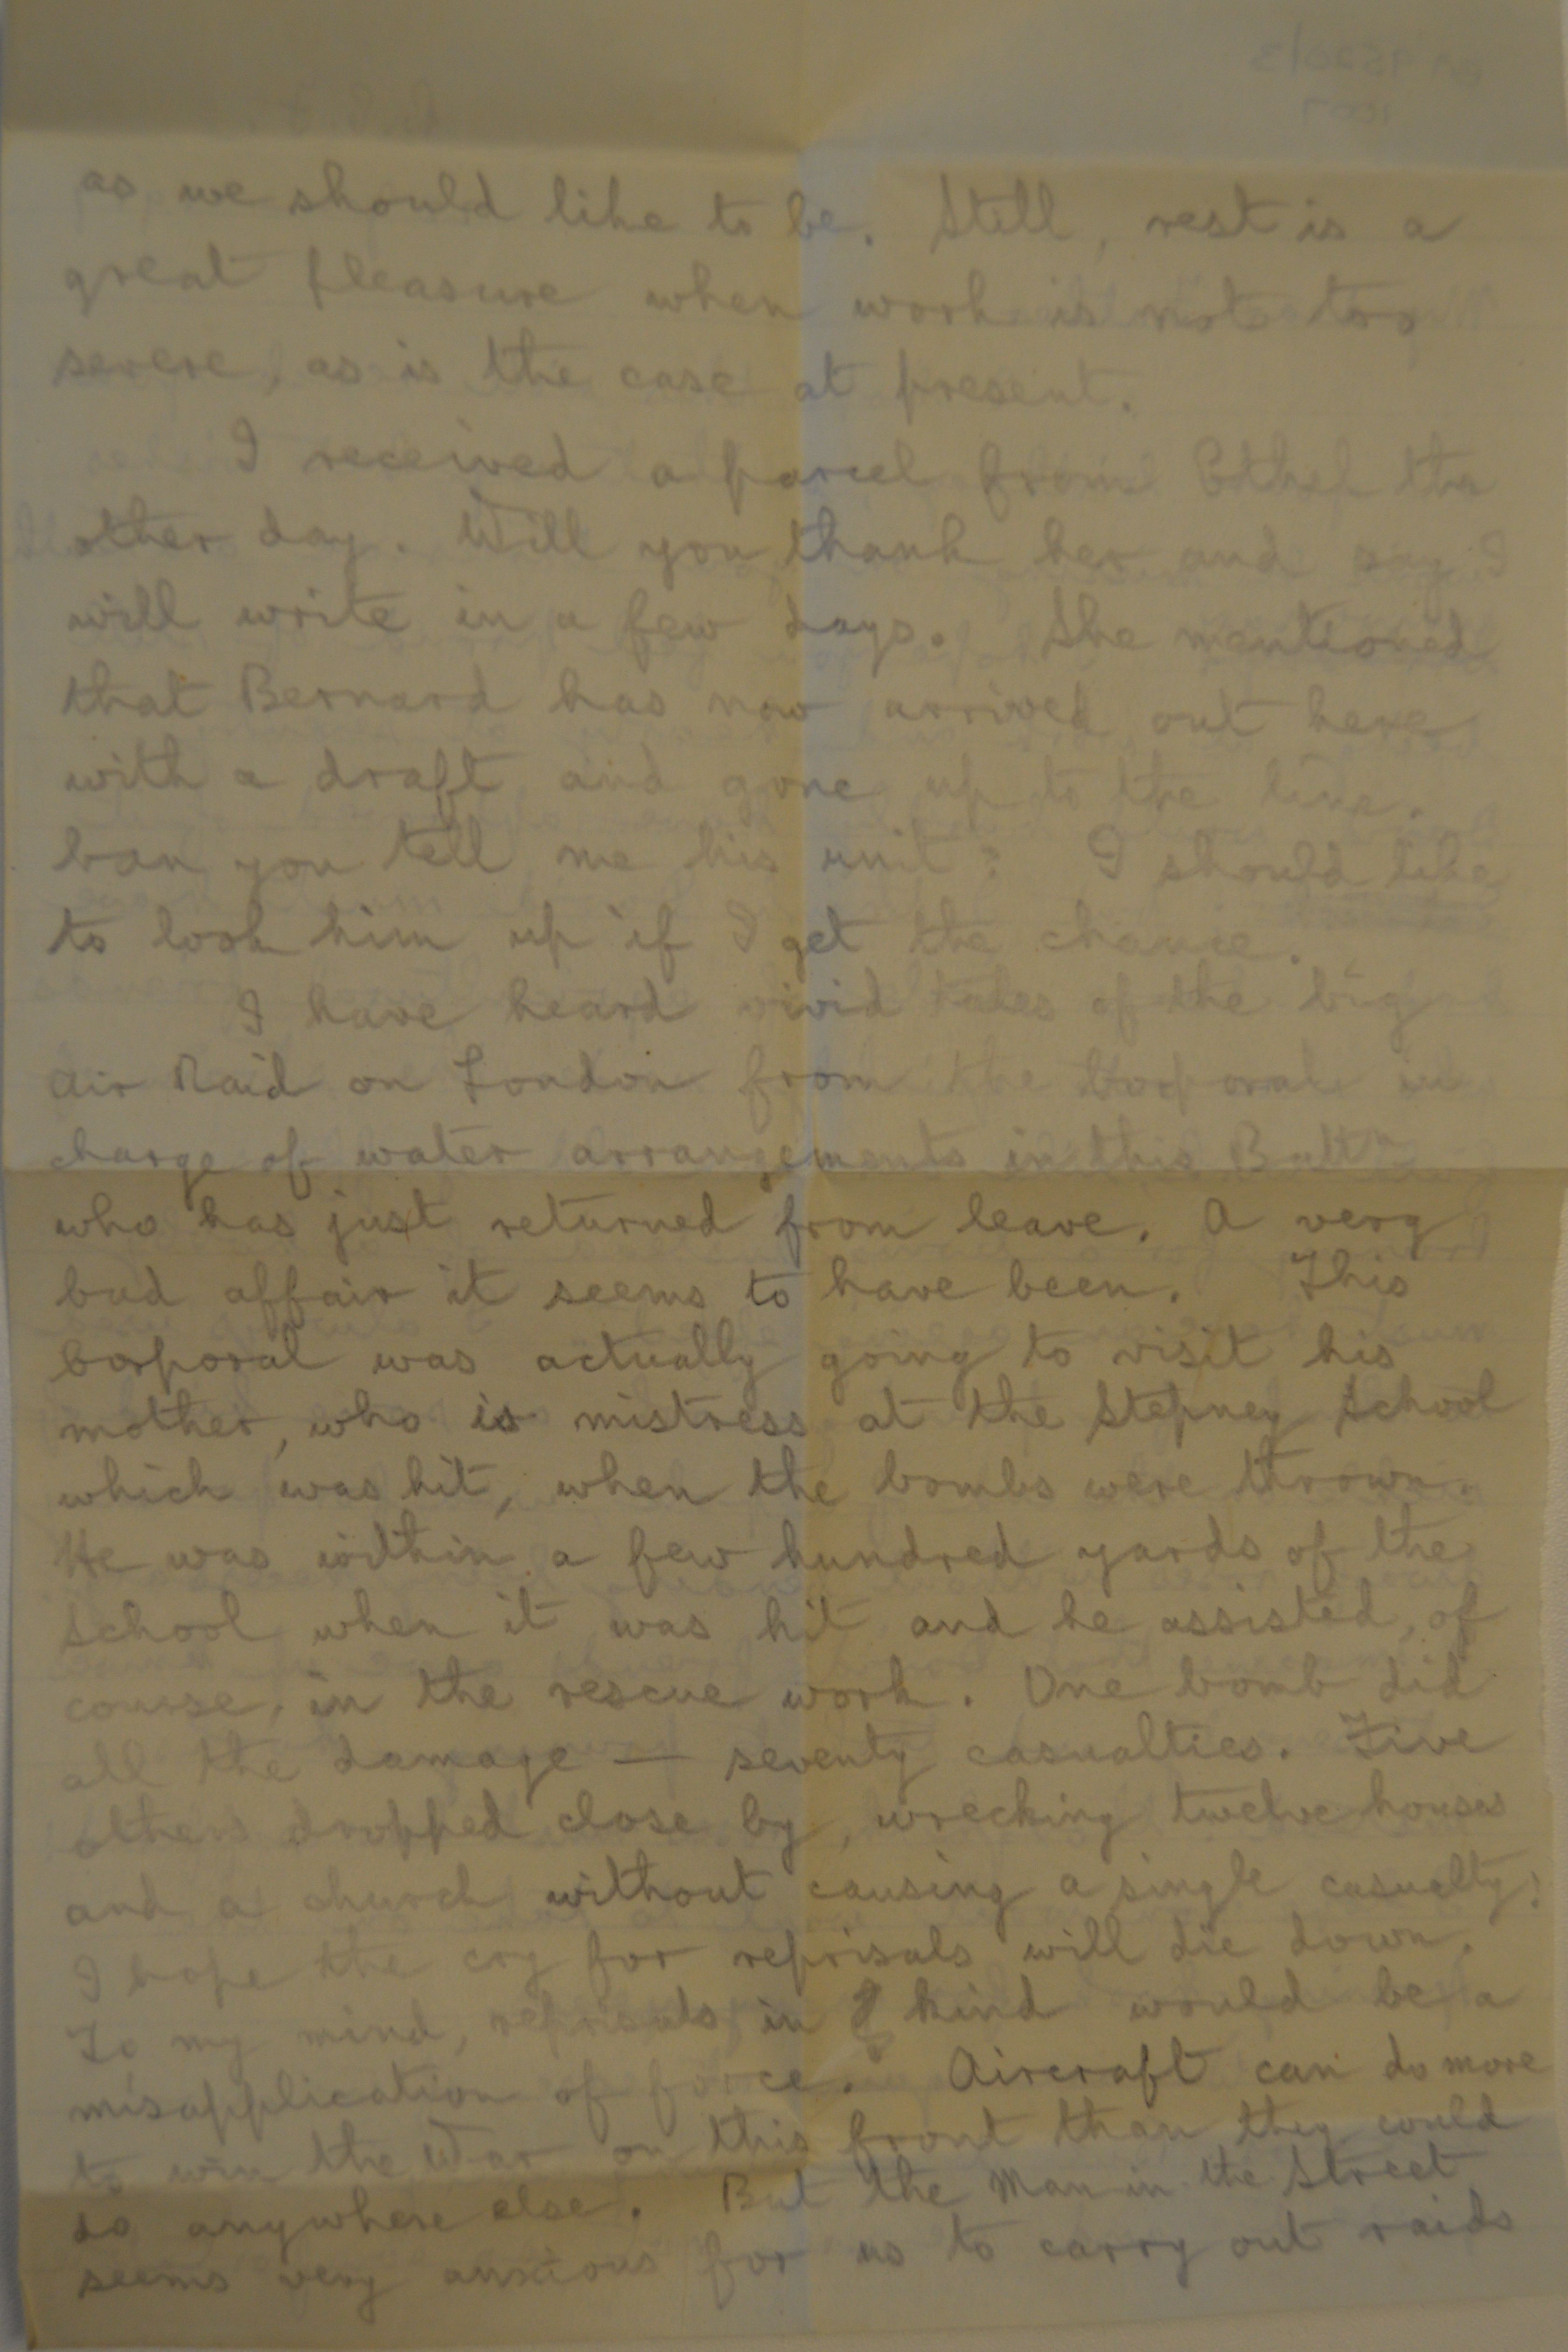 as we should like to be. Still, rest is a
great pleasure when work is not too
severe, as is the case at present.
I received a parcel from Ethel the
other day. Will you thank her and say I
will write in a few days. She mentioned
that Bernard has now arrived out here
with a draft and gone up to the line.
Can you tell me his unit? I should like
to look him up if I get the chance.
I have heard vivid tales of the big
Air Raid on London from the Corporal in
charge of water arrangements in this Battn
who has just returned from leave. A very
bad affair it seems to have been. This
Corporal was actually going to visit his
mother, who is mistress at the Stepney School
which was hit, when the bombs were thrown.
He was within a few hundred yards of the
School when it was hit and he assisted, of
course, in the rescue work. One bomb did
all the damage — seventy casualties. Five
others dropped close by, wrecking twelve houses
and a church without causing a single casualty!
I hope the cry for reprisals will die down.
To my mind, reprisals in kind would be a
misapplication of force. Aircraft can do more
to win the War on this front than they could
do anywhere else. But the Man in the Street
seems very anxious for us to carry out raids